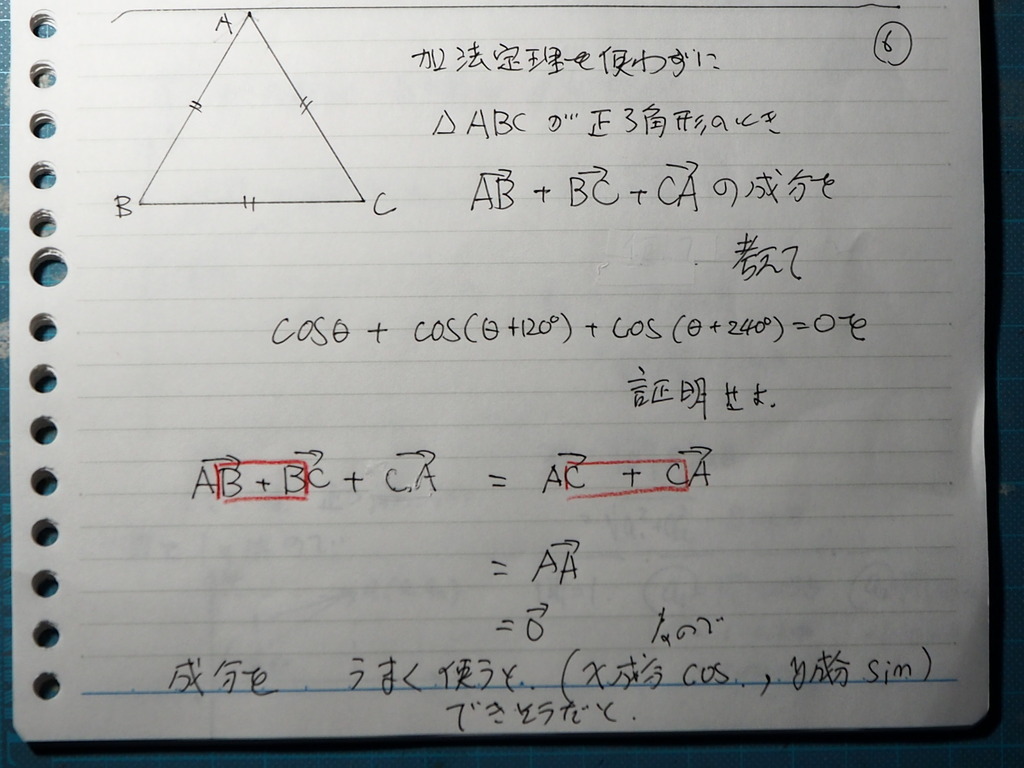 ⑥
A
B
C
加法定理を使わずに
△ABCが正3角形のとき
AB→ + BC→ + CA→ の成分を
考えて
cosθ + cos(θ+120°) + cos(θ+240°)=0を
証明せよ.
AB→ + BC→ + CA→ = AC→ + CA→
= AA→
= 0→ なので
成分を うまく使うと. (x成分 cos. , y成分 sin)
できそうだと.